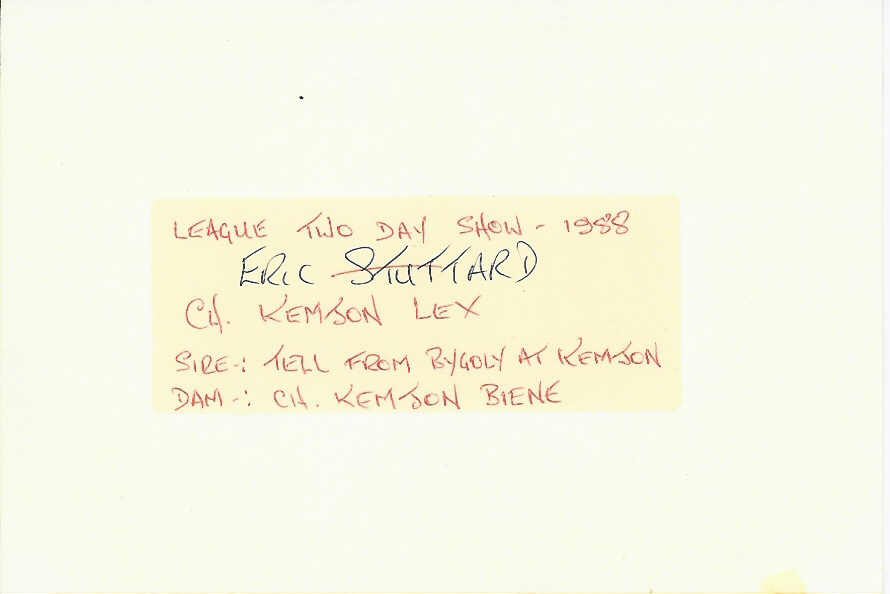 LEAGUE TWO DAY SHOW - 1988
ERIC STUTTARD
CH. KEMJON LEX
SIRE-: TELL FROM BYGOLY AT KEMJON
DAM-: CH. KEMJON BIENE